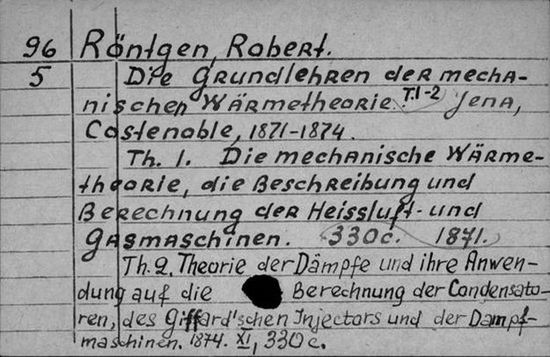 96 Röntgen, Robert.
5 Die Grundlehren der mecha-
nischen Wärmetheorie. T.1-2 Jena,
Costenoble, 1871-1874.
Th. 1. Die mechanische Wärme-
theorie, die Beschreibung und
Berechnung der Heissluft- und
Gasmaschinen. 330c. 1871.
Th. 2. Theorie der Dämpfe und ihre Anwen-
dung auf die Berechnung der Condensato-
ren, des Giffard'schen Injectors und der Dampf-
maschinen. 1874. XI, 330c.